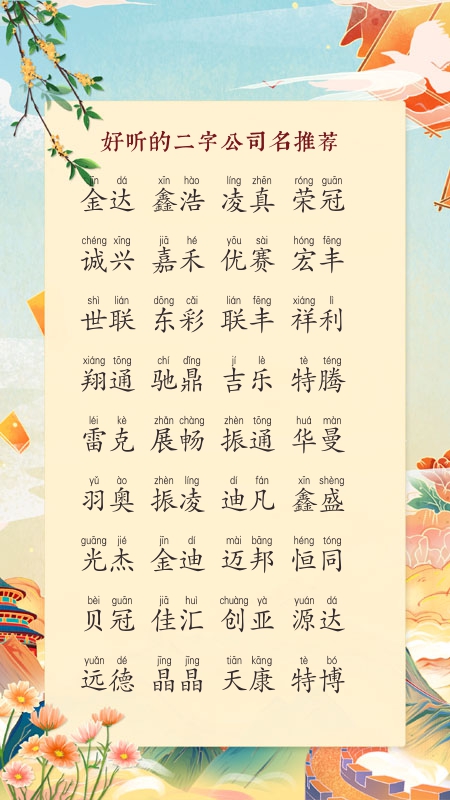 好听的二字公司名推荐
jīn dá xīn hào líng zhēn róng guān
金达 鑫浩 凌真 荣冠
chéng xīng jiā hé yōu sài hóng fēng
诚兴 嘉禾 优赛 宏丰
shì lián dōng cǎi lián fēng xiáng lì
世联 东彩 联丰 祥利
xiáng tōng chí dǐng jí lè tè téng
翔通 驰鼎 吉乐 特腾
léi kè zhǎn chàng zhèn tōng huá màn
雷克 展畅 振通 华曼
yǔ ào zhèn líng dí fán xīn shèng
羽奥 振凌 迪凡 鑫盛
guāng jié jīn dí mài bāng héng tóng
光杰 金迪 迈邦 恒同
bèi guān jiā huì chuàng yà yuán dá
贝冠 佳汇 创亚 源达
yuǎn dé jīng jīng tiān kāng tè bó
远德 晶晶 天康 特博